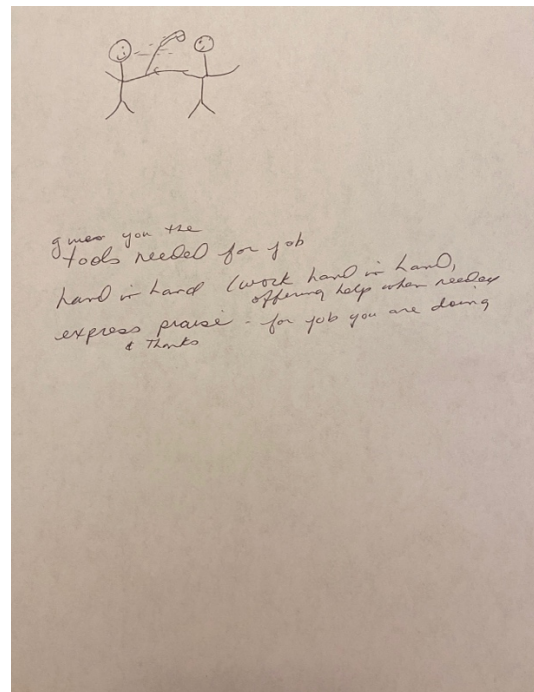 gives you the
tools needed for job
hand in hand (work hand in hand,
offering help when needed
express praise - for job you are doing
& Thanks